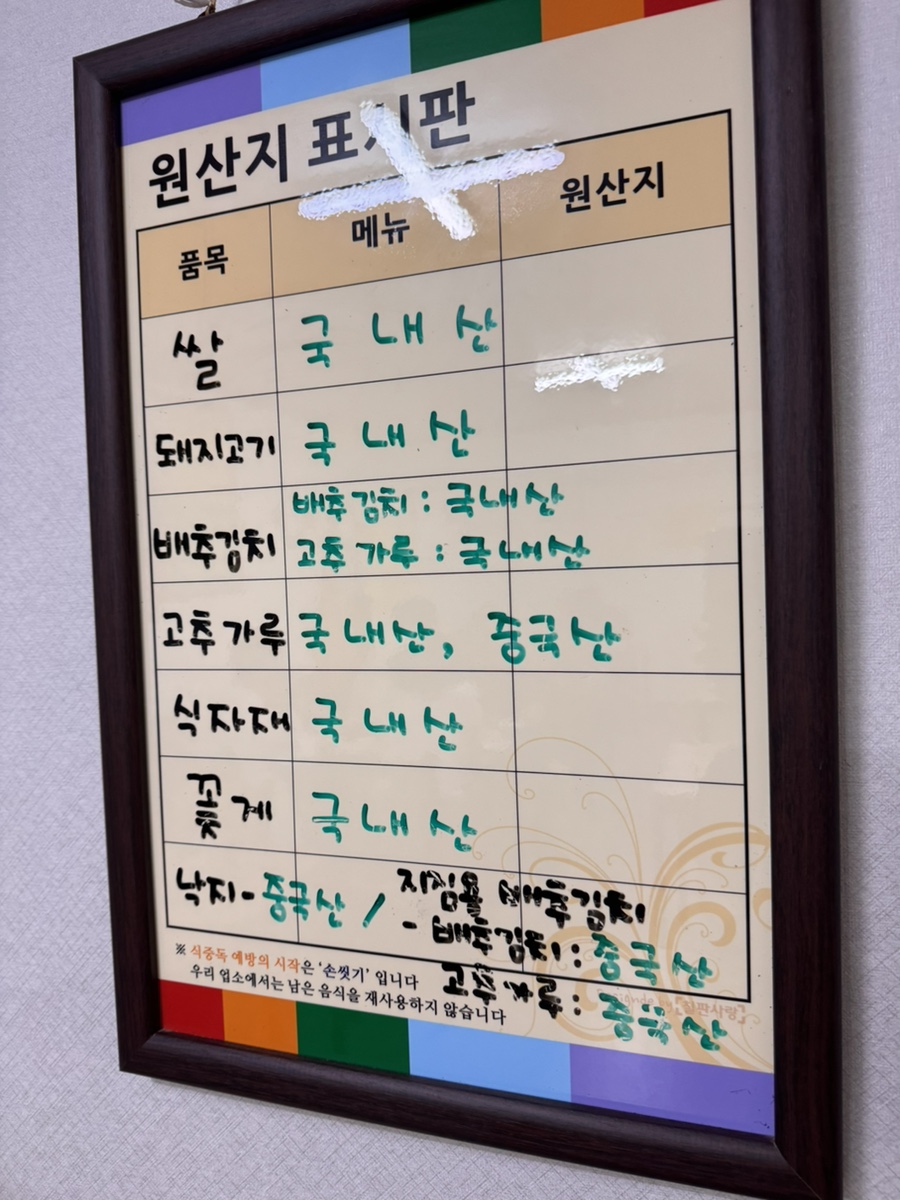 원산지 표시판
품목 메뉴 원산지
쌀 국내산
돼지고기 국내산
배추김치 배추김치 : 국내산
고추가루 : 국내산
고추가루 국내산, 중국산
식자재 국내산
꽃게 국내산
낙지-중국산 / 지짐용 배추김치
- 배추김치 : 중국산
고추가루 : 중국산
※ 식중독 예방의 시작은 '손씻기' 입니다
우리 업소에서는 남은 음식을 재사용하지 않습니다